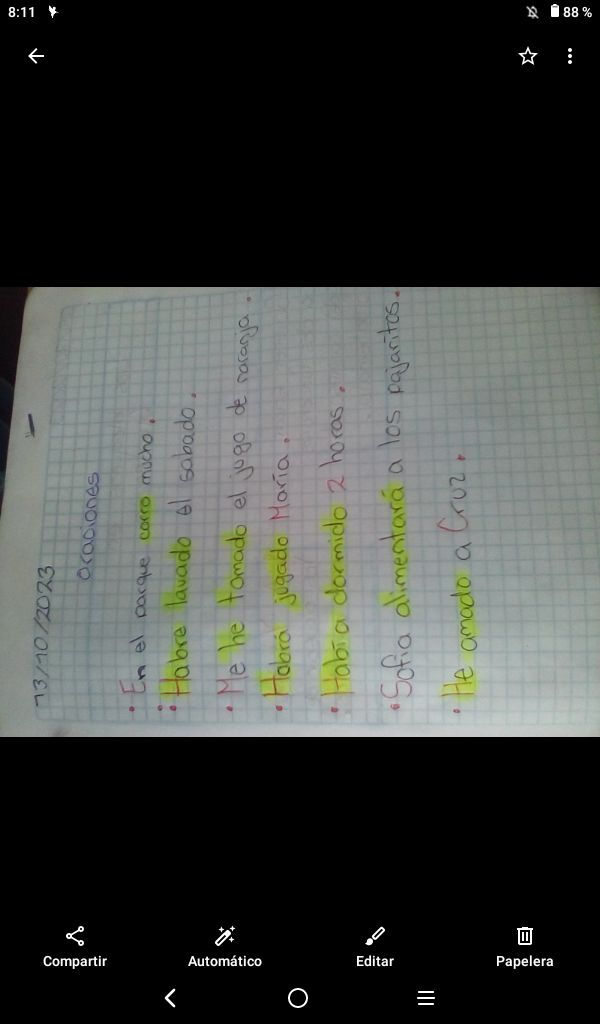 8:11
88 %
13/10/2023
oraciones
• En el parque corro mucho.
• Habre lavado el sabado.
• Me he tomado el jugo de naranja.
• Habrá jugado María.
• Había dormido 2 horas.
• Sofia alimentará a los pajaritos.
• He amado a Cruz.
Compartir
Automático
Editar
Papelera